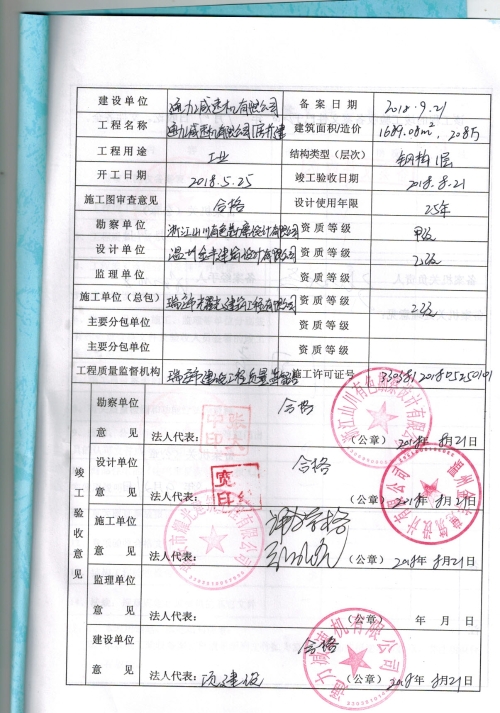 建设单位 通力减速机有限公司 备案日期 2018.9.21
工程名称 通力减速机有限公司厂房扩建 建筑面积/造价 1689.08m², 208万
工程用途 工业 结构类型（层次） 钢构1层
开工日期 2018.5.25 竣工验收日期 2018.8.21
施工图审查意见 合格 设计使用年限 25年
勘察单位 浙江山川有色勘察设计有限公司 资质等级 甲级
设计单位 资质等级
监理单位 资质等级
施工单位（总包） 资质等级 二级
主要分包单位 资质等级
主要分包单位 资质等级
工程质量监督机构 瑞安市建设工程质量监督站 施工许可证号 330381201805250101
竣工验收意见
勘察单位意见 合格
法人代表： （公章） 2018年8月21日
设计单位意见 合格
法人代表： （公章） 2018年8月21日
施工单位意见
法人代表： （公章） 2018年8月21日
监理单位意见
法人代表： （公章） 年 月 日
建设单位意见 合格
法人代表： （公章） 2018年8月21日
浙江山川有色勘察设计有限公司
通力减速机有限公司